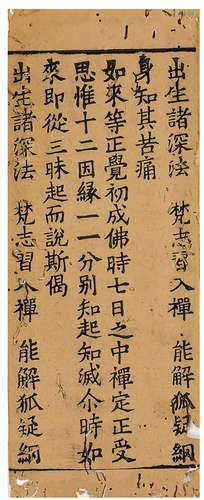 出生諸深法 梵志習入禪 能解狐疑網
身知其苦痛
如來等正覺初成佛時七日之中禪定正受
思惟十二因緣一一分別知起知滅尒時如
來即從三昧起而說斯偈
出生諸深法 梵志習入禪 能解狐疑網